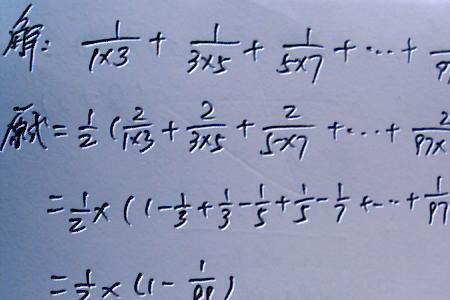 解: 1/1×3 + 1/3×5 + 1/5×7 + … + 1/9
原式 = 1/2 (2/1×3 + 2/3×5 + 2/5×7 + … + 2/97×
= 1/2 × (1 - 1/3 + 1/3 - 1/5 + 1/5 - 1/7 + … + 1/97
= 1/2 × (1 - 1/99)